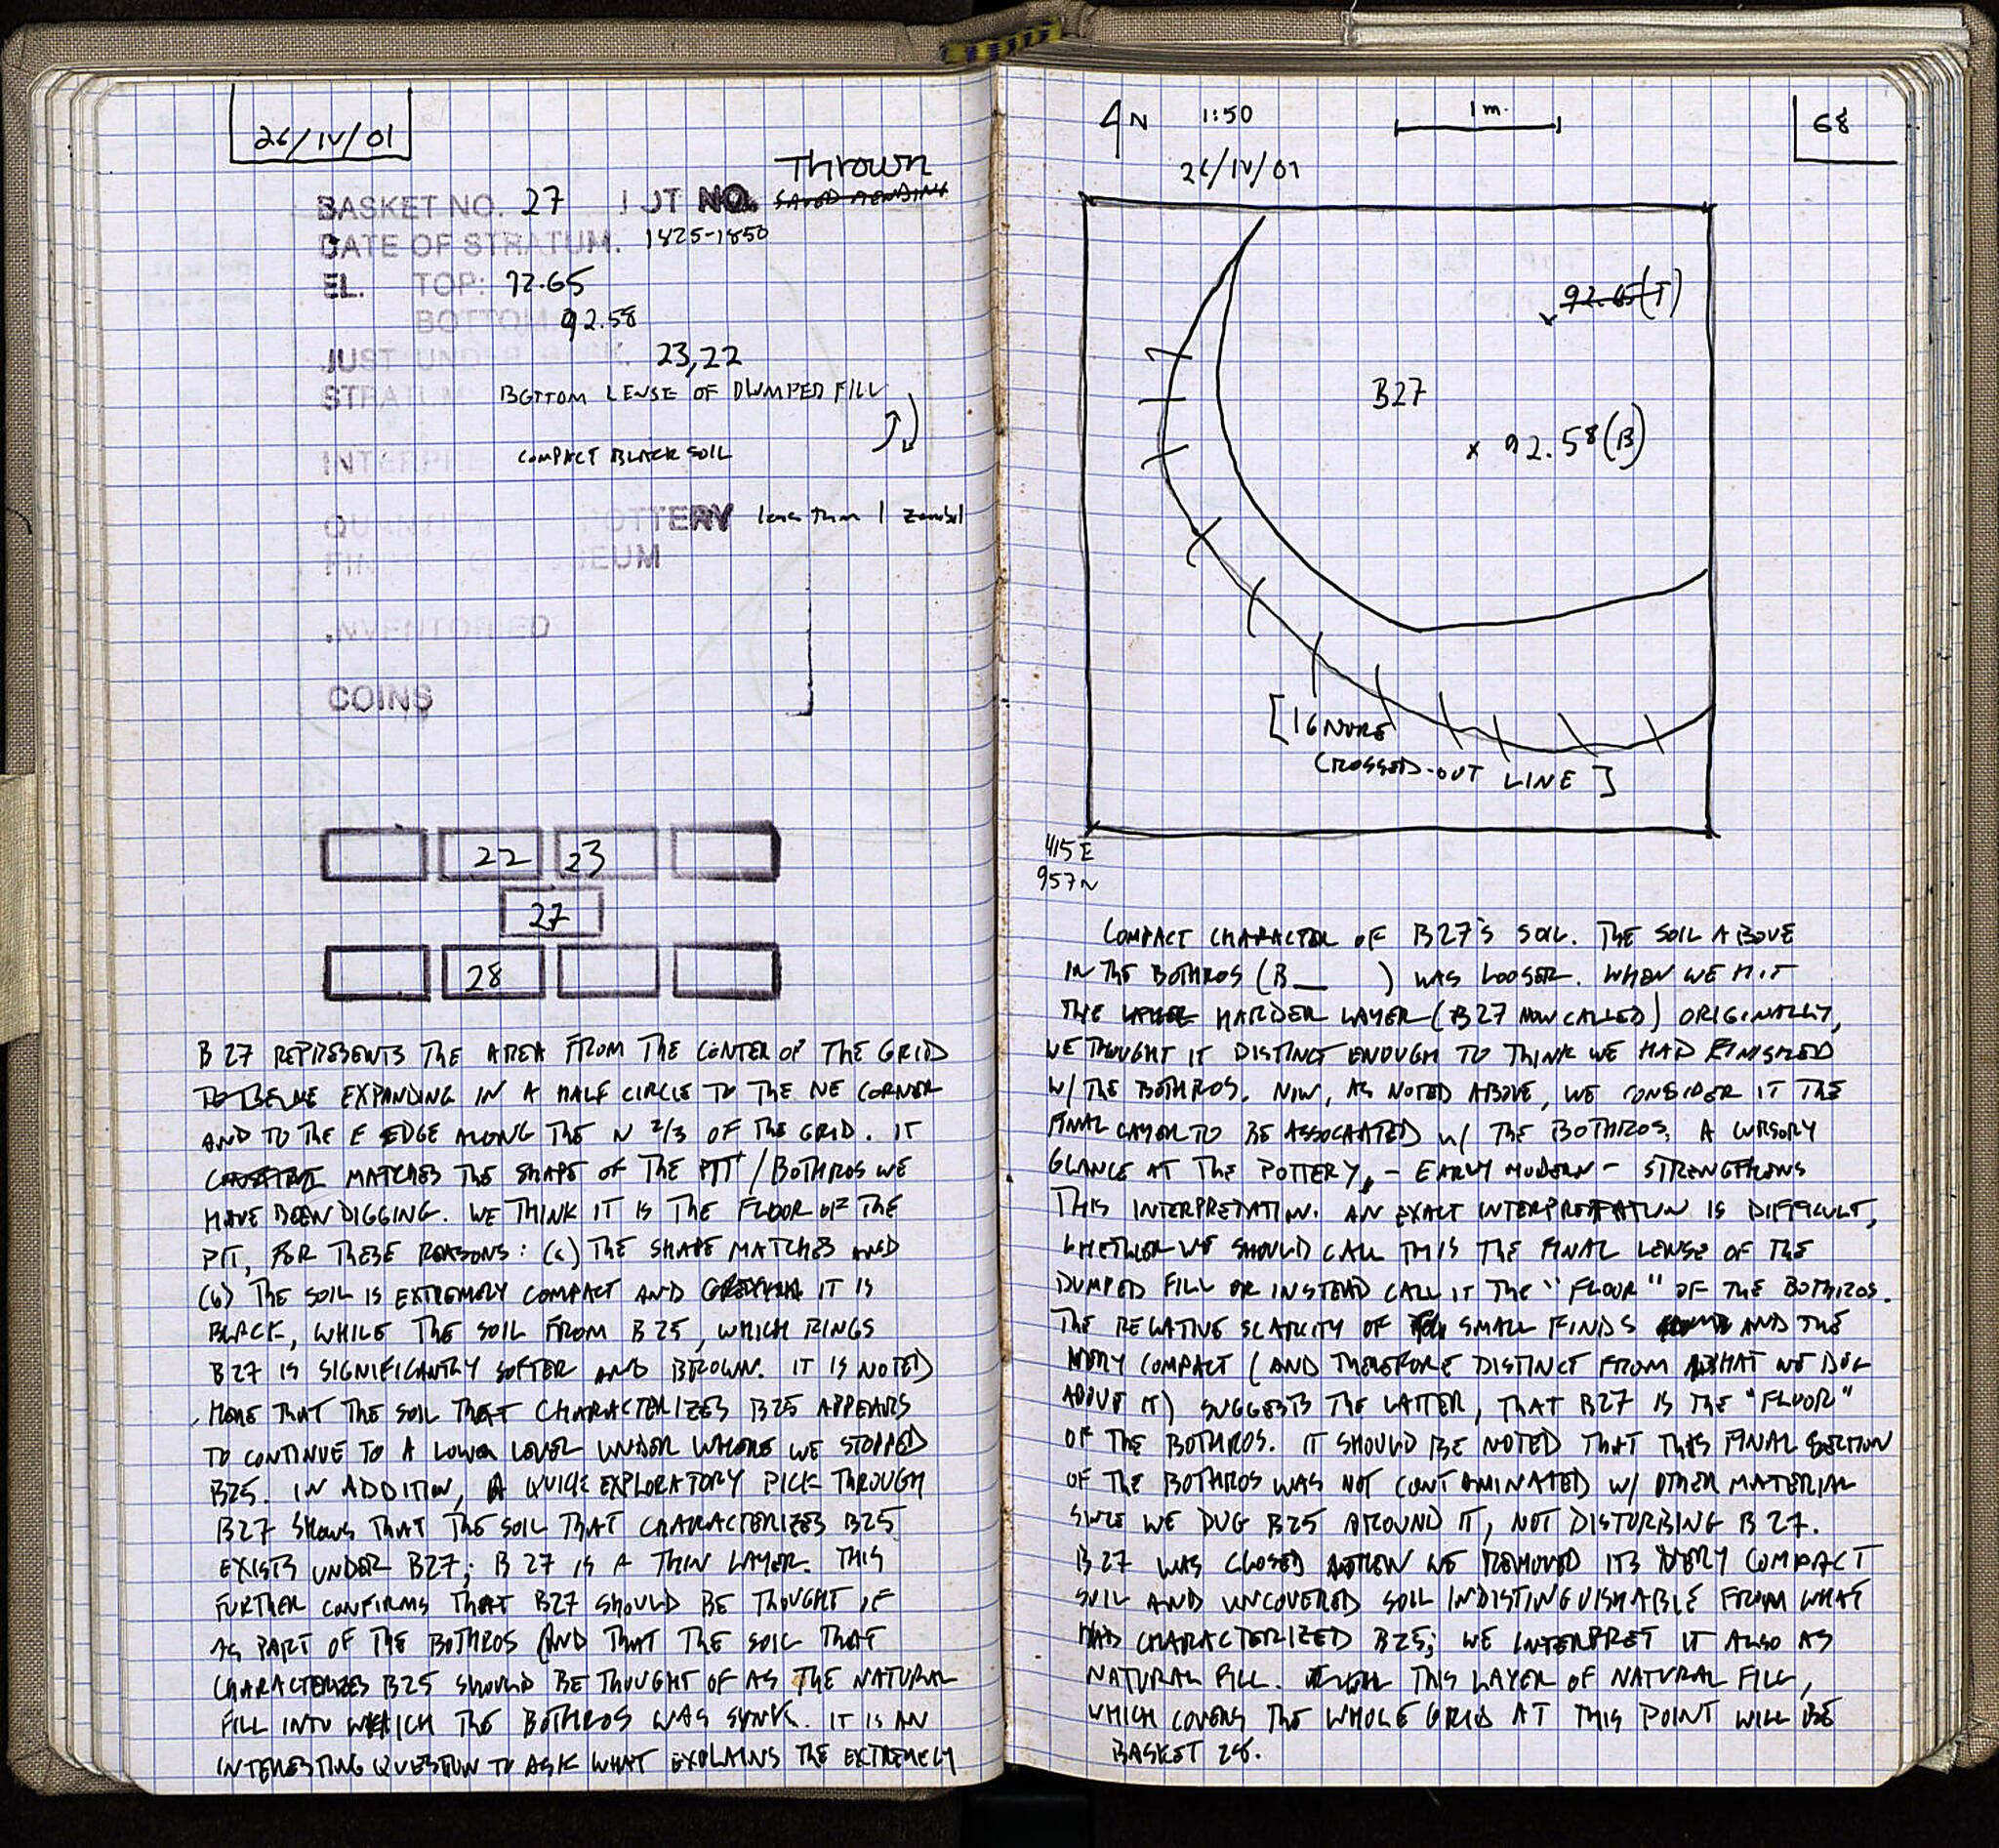 26/IV/01
Thrown
BASKET NO. 27 LOT NO.
DATE OF STRATUM. 1825-1850
EL. TOP: 92.65
BOTTOM 92.58
JUST UNDER BASK. 23,22
STRATUM BOTTOM LENSE OF DUMPED FILL
INTERPRE COMPACT BLACK SOIL
QUANTITY POTTERY less than 1 zembil
FINDS TO MUSEUM
INVENTORIED
COINS
22 23
27
28
B 27 REPRESENTS THE AREA FROM THE CENTER OF THE GRID
EXPANDING IN A HALF CIRCLE TO THE NE CORNER
AND TO THE E EDGE ALONG THE N 2/3 OF THE GRID. IT
MATCHES THE SHAPE OF THE PIT / BOTHROS WE
HAVE BEEN DIGGING. WE THINK IT IS THE FLOOR OF THE
PIT, FOR THESE REASONS: (a) THE SHAPE MATCHES AND
(b) THE SOIL IS EXTREMELY COMPACT AND IT IS
BLACK, WHILE THE SOIL FROM B25, WHICH RINGS
B27 IS SIGNIFICANTLY SOFTER AND BROWN. IT IS NOTED
HERE THAT THE SOIL THAT CHARACTERIZES B25 APPEARS
TO CONTINUE TO A LOWER LEVEL UNDER WHERE WE STOPPED
B25. IN ADDITION, A QUICK EXPLORATORY PICK THROUGH
B27 SHOWS THAT THE SOIL THAT CHARACTERIZES B25
EXISTS UNDER B27; B 27 IS A THIN LAYER. THIS
FURTHER CONFIRMS THAT B27 SHOULD BE THOUGHT OF
AS PART OF THE BOTHROS AND THAT THE SOIL THAT
CHARACTERIZES B25 SHOULD BE THOUGHT OF AS THE NATURAL
FILL INTO WHICH THE BOTHROS WAS SUNK. IT IS AN
INTERESTING QUESTION TO ASK WHAT EXPLAINS THE EXTREMELY
N 1:50 1 m. 68
26/IV/01
92.65 (T)
B27
x 92.58 (B)
[IGNORE
CROSSED-OUT LINE]
415 E
957 N
COMPACT CHARACTER OF B27'S SOIL. THE SOIL ABOVE
IN THE BOTHROS (B__ ) WAS LOOSER. WHEN WE HIT
THE HARDER LAYER (B27 NOW CALLED) ORIGINALLY,
WE THOUGHT IT DISTINCT ENOUGH TO THINK WE HAD FINISHED
W/ THE BOTHROS. NOW, AS NOTED ABOVE, WE CONSIDER IT THE
FINAL LAYER TO BE ASSOCIATED W/ THE BOTHROS. A CURSORY
GLANCE AT THE POTTERY, - EARLY MODERN - STRENGTHENS
THIS INTERPRETATION. AN EXACT INTERPRETATION IS DIFFICULT,
WHETHER WE SHOULD CALL THIS THE FINAL LENSE OF THE
DUMPED FILL OR INSTEAD CALL IT THE "FLOOR" OF THE BOTHROS.
THE RELATIVE SCARCITY OF SMALL FINDS AND THE
VERY COMPACT (AND THEREFORE DISTINCT FROM WHAT WE DUG
ABOVE IT) SUGGESTS THE LATTER, THAT B27 IS THE "FLOOR"
OF THE BOTHROS. IT SHOULD BE NOTED THAT THIS FINAL SECTION
OF THE BOTHROS WAS NOT CONTAMINATED W/ OTHER MATERIAL
SINCE WE DUG B25 AROUND IT, NOT DISTURBING B 27.
B 27 WAS CLOSED WHEN WE REMOVED ITS VERY COMPACT
SOIL AND UNCOVERED SOIL INDISTINGUISHABLE FROM WHAT
HAD CHARACTERIZED B25; WE INTERPRET IT ALSO AS
NATURAL FILL. THIS LAYER OF NATURAL FILL,
WHICH COVERS THE WHOLE GRID AT THIS POINT WILL BE
BASKET 28.